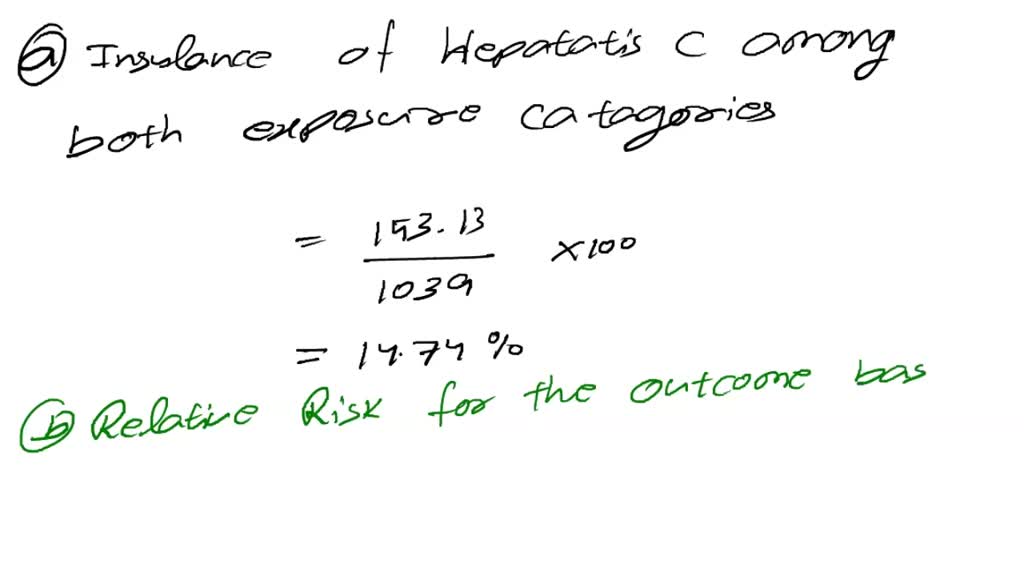 (a) Insulance of Hepatatis C among
both exposure catagories
= 153.13 / 1039 × 100
= 14.74 %
(b) Relative Risk for the outcome bas